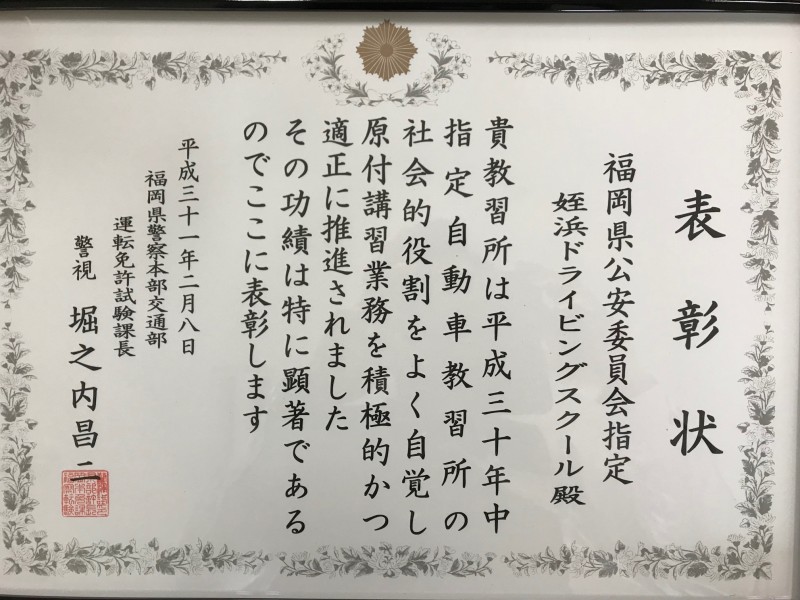 表彰状
福岡県公安委員会指定
姪浜ドライビングスクール殿
貴教習所は平成三十年中
指定自動車教習所の
社会的役割をよく自覚し
原付講習業務を積極的かつ
適正に推進されました
その功績は特に顕著である
のでここに表彰します
平成三十一年二月八日
福岡県警察本部交通部
運転免許試験課長
警視 堀之内昌二